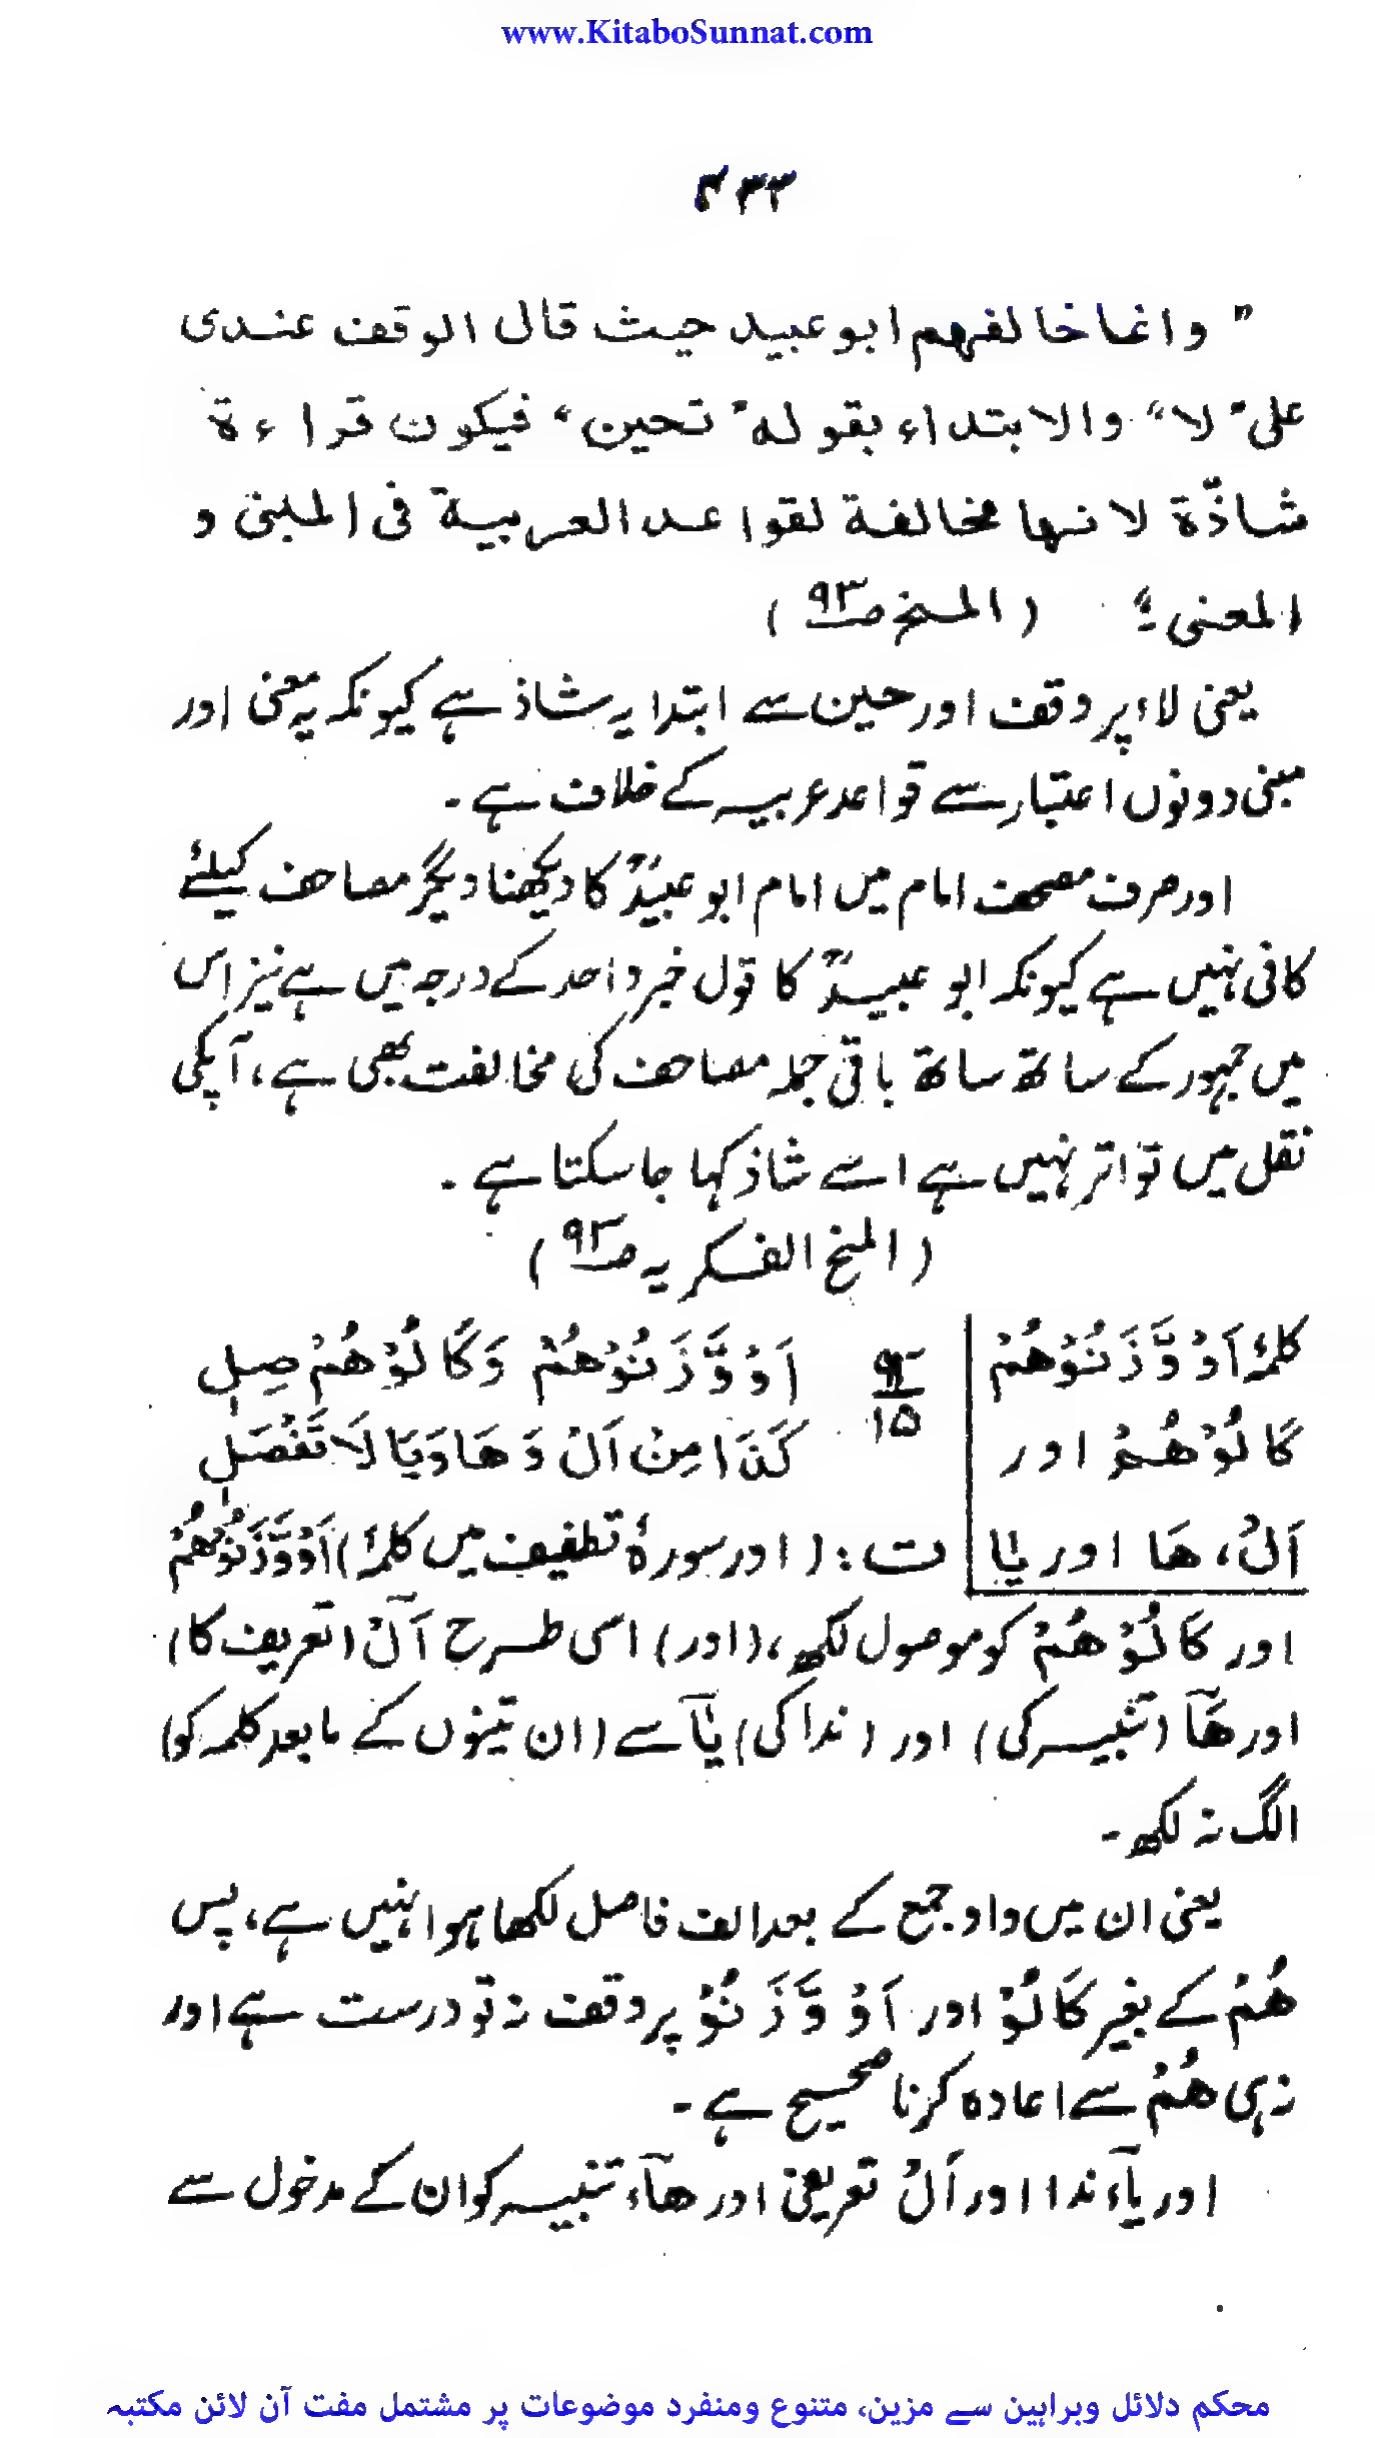 www.KitaboSunnat.com
۴۳۳
" وانما خالفهم ابو عبيد حيث قال الوقف عندى
على " لا " والابتداء بقوله " تحين " فيكون قراءة
شاذّة لانها مخالفة لقواعد العربية فى المبنى و
المعنى " (المنح ص۹۳)
یعنی لاء پر وقف اور حین سے ابتدا یہ شاذ ہے کیونکہ یہ معنی اور
مبنی دونوں اعتبار سے قواعد عربیہ کے خلاف ہے۔
اور صرف مصحف امام میں امام ابو عبیدؒ کا دیکھنا دیگر مصاحف کیلئے
کافی نہیں ہے کیونکہ ابو عبیدؒ کا قول خبر واحد کے درجہ میں ہے نیز اس
میں جمہور کے ساتھ ساتھ باقی جملہ مصاحف کی مخالفت بھی ہے، آپکی
نقل میں تواتر نہیں ہے اسے شاذ کہا جا سکتا ہے۔
(المنح الفکریہ ص۹۳)
کلمۂ اَوْ وَّزَنُوْهُمْ
كَالُوْهُمْ اور
اَلْ، هَا اور يَا
۹۴
۱۵
اَوْ وَّزَنُوْهُمْ وَكَالُوْهُمْ صِلِ
كَذَا مِنْ اَلْ وَهَا وَيَا لَا تَفْصِلِ
ت : (اور سورۂ تطفیف میں کلمۂ) اَوْ وَّزَنُوْهُمْ
اور كَالُوْهُمْ کو موصول لکھ، (اور) اسی طرح اَلْ (تعریف کا)
اور هَآ (تنبیہ کی) اور (ندا کی) يَآ سے (ان تینوں کے مابعد کلمہ کو)
الگ نہ لکھ۔
یعنی ان میں واو جمع کے بعد الف فاصل لکھا ہوا نہیں ہے، پس
هُمْ کے بغیر كَالُوْ اور اَوْ وَّزَنُوْ پر وقف نہ تو درست ہے اور
نہ ہی هُمْ سے اعادہ کرنا صحیح ہے۔
اور یآء ندا اور اَلْ تعریفی اور هآء تنبیہ کو ان کے مدخول سے
محکم دلائل وبراہین سے مزین، متنوع ومنفرد موضوعات پر مشتمل مفت آن لائن مکتبہ